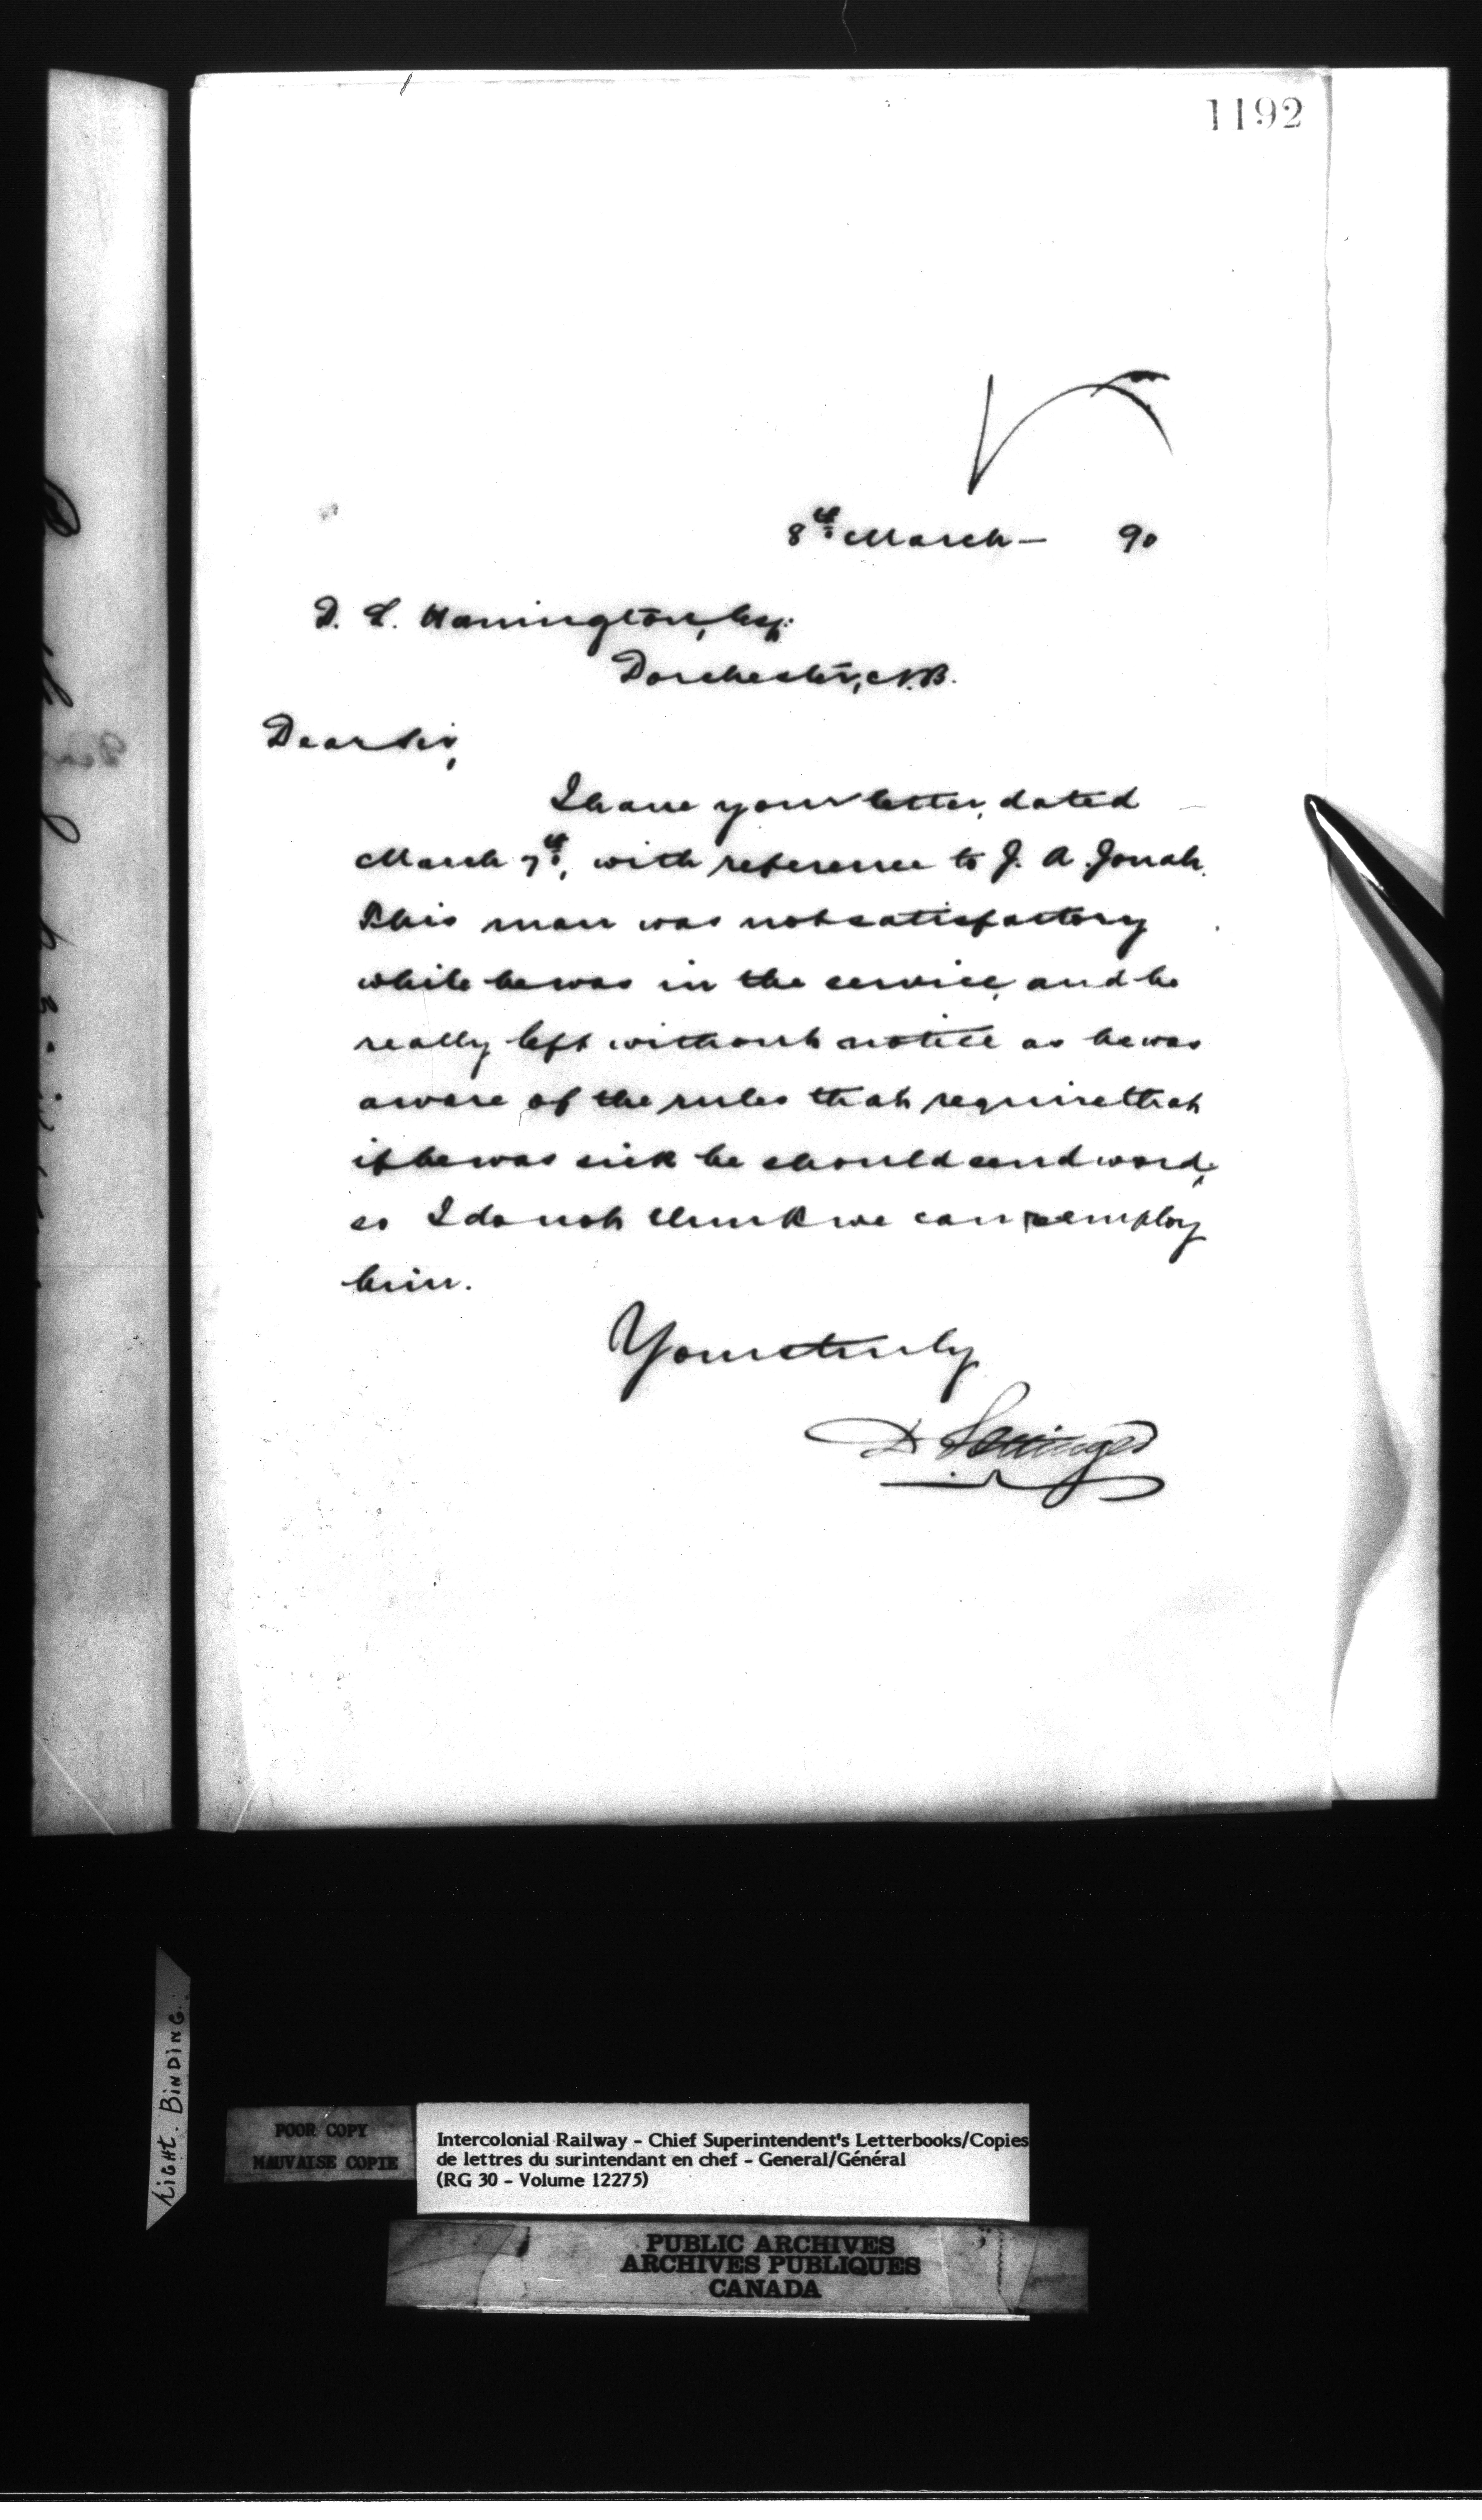 1192
8th March — 90
D. L. Hanington, Esq:
Dorchester, N.B.
Dear Sir,
I have your letter, dated
March 7th, with reference to J. A. Jonah.
This man was not satisfactory
while he was in the service, and he
really left without notice as he was
aware of the rules that require that
if he was sick he should send word,
so I do not think we can reemploy
him.
Yours truly
D Pottinger
LIGHT. BINDING.
POOR COPY
MAUVAISE COPIE
Intercolonial Railway - Chief Superintendent's Letterbooks/Copies
de lettres du surintendant en chef - General/Général
(RG 30 - Volume 12275)
PUBLIC ARCHIVES
ARCHIVES PUBLIQUES
CANADA